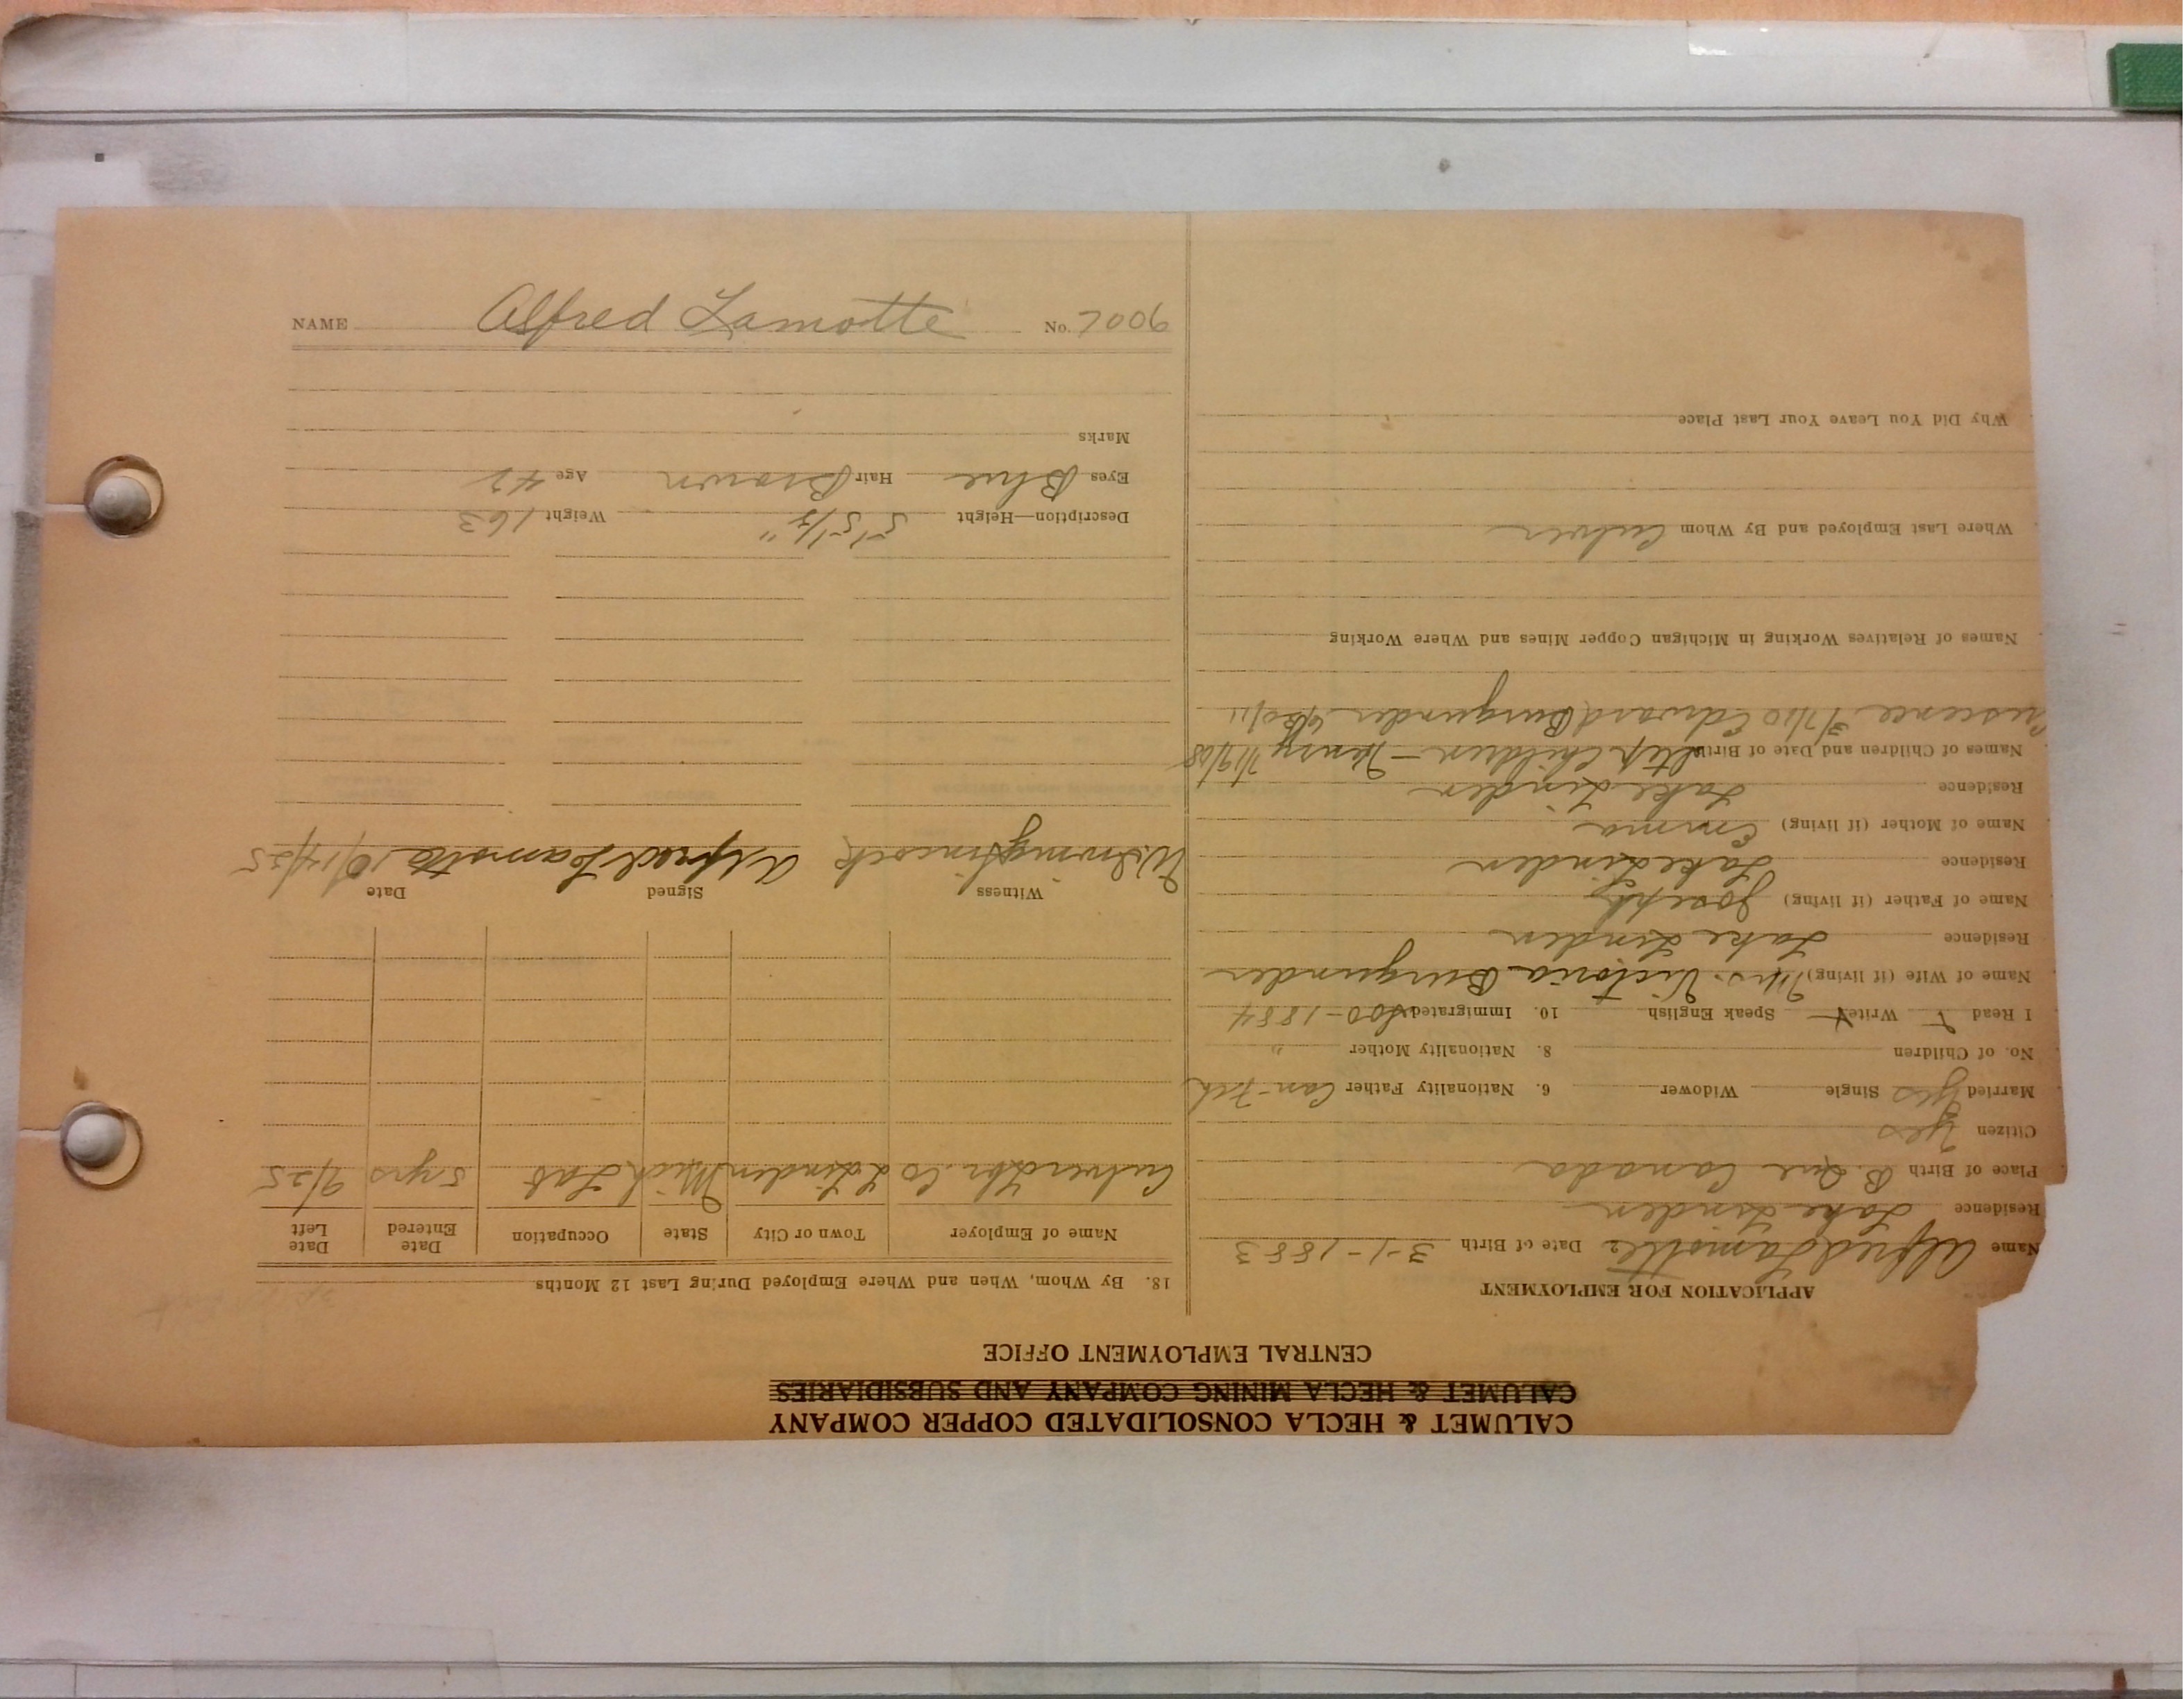 CALUMET & HECLA CONSOLIDATED COPPER COMPANY
CALUMET & HECLA MINING COMPANY AND SUBSIDIARIES
CENTRAL EMPLOYMENT OFFICE
APPLICATION FOR EMPLOYMENT
Name Alfred Lamotte Date of Birth 3-1-1883
Residence Lake Linden
Place of Birth B. Que Canada
Citizen Yes
Married Yes Single Widower 6. Nationality Father Can-Fch
No. of Children 8. Nationality Mother "
I Read Write Speak English 10. Immigrated Soo-1884
Name of Wife (if living) Mrs. Victoria Burgunder
Residence Lake Linden
Name of Father (if living) Joseph
Residence Lake Linden
Name of Mother (if living) Emma
Residence Lake Linden
Names of Children and Date of Birth Step Children - Henry 7/19/08
3/7/10 Edward Burgunder
Names of Relatives Working in Michigan Copper Mines and Where Working
Where Last Employed and By Whom Culver
Why Did You Leave Your Last Place
18. By Whom, When and Where Employed During Last 12 Months
Name of Employer Town or City State Occupation Date Entered Date Left
Culver Lbr. Co L Linden Mich Lab 5 yrs 9/25
Witness Signed Date
Alfred Lamotte 10/14/25
Description—Height 5' 5 1/2" Weight 163
Eyes Blue Hair Brown Age 42
Marks
NAME Alfred Lamotte No. 7006